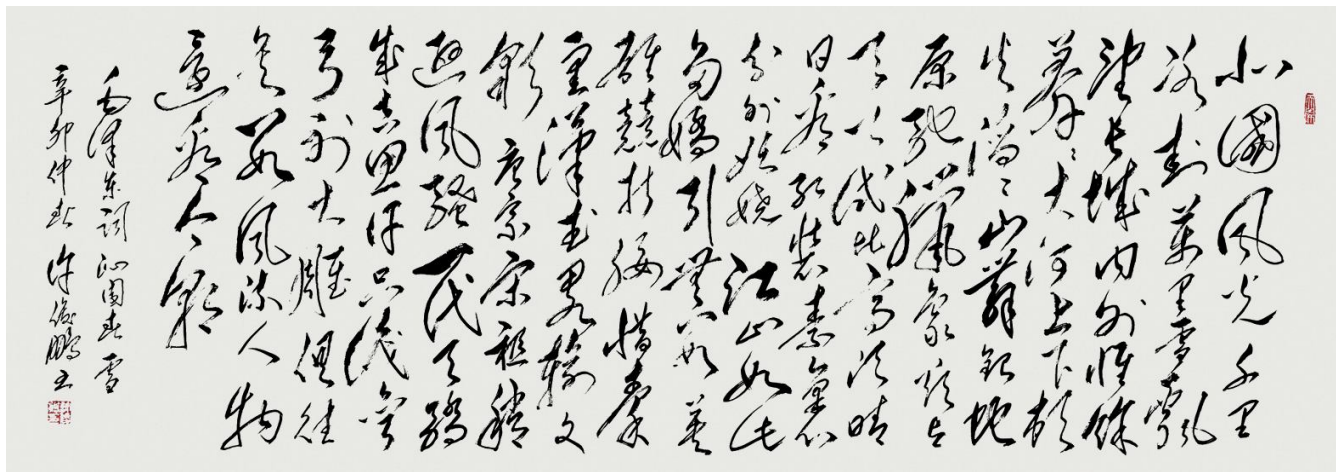 北國風光千里
冰封萬里雪飄
望長城内外惟餘
莽莽大河上下頓
失滔滔山舞銀蛇
原馳臘象欲与
天公試比高須晴
日看紅裝素裹
分外妖嬈江山如此
多嬌引無數英
雄競折腰惜秦
皇漢武畧輸文
彩唐宗宋祖稍
遜風騷一代天驕
成吉思汗只識彎
弓射大雕俱往
矣數風流人物
還看今朝
毛澤東詞沁園春雪
辛卯仲春許俊鵬书